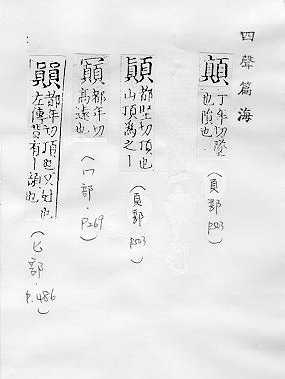 四聲篇海
顛
丁年切墜
也隕也
(頁部 P.503)
顚
都年切頂也
山頂為之丨
(頁部 P.503)
都年切
高遠也
(冖部.P.269)
都年切頂也又姓也
左傳晉有丨頡也
(匕部.P.486)